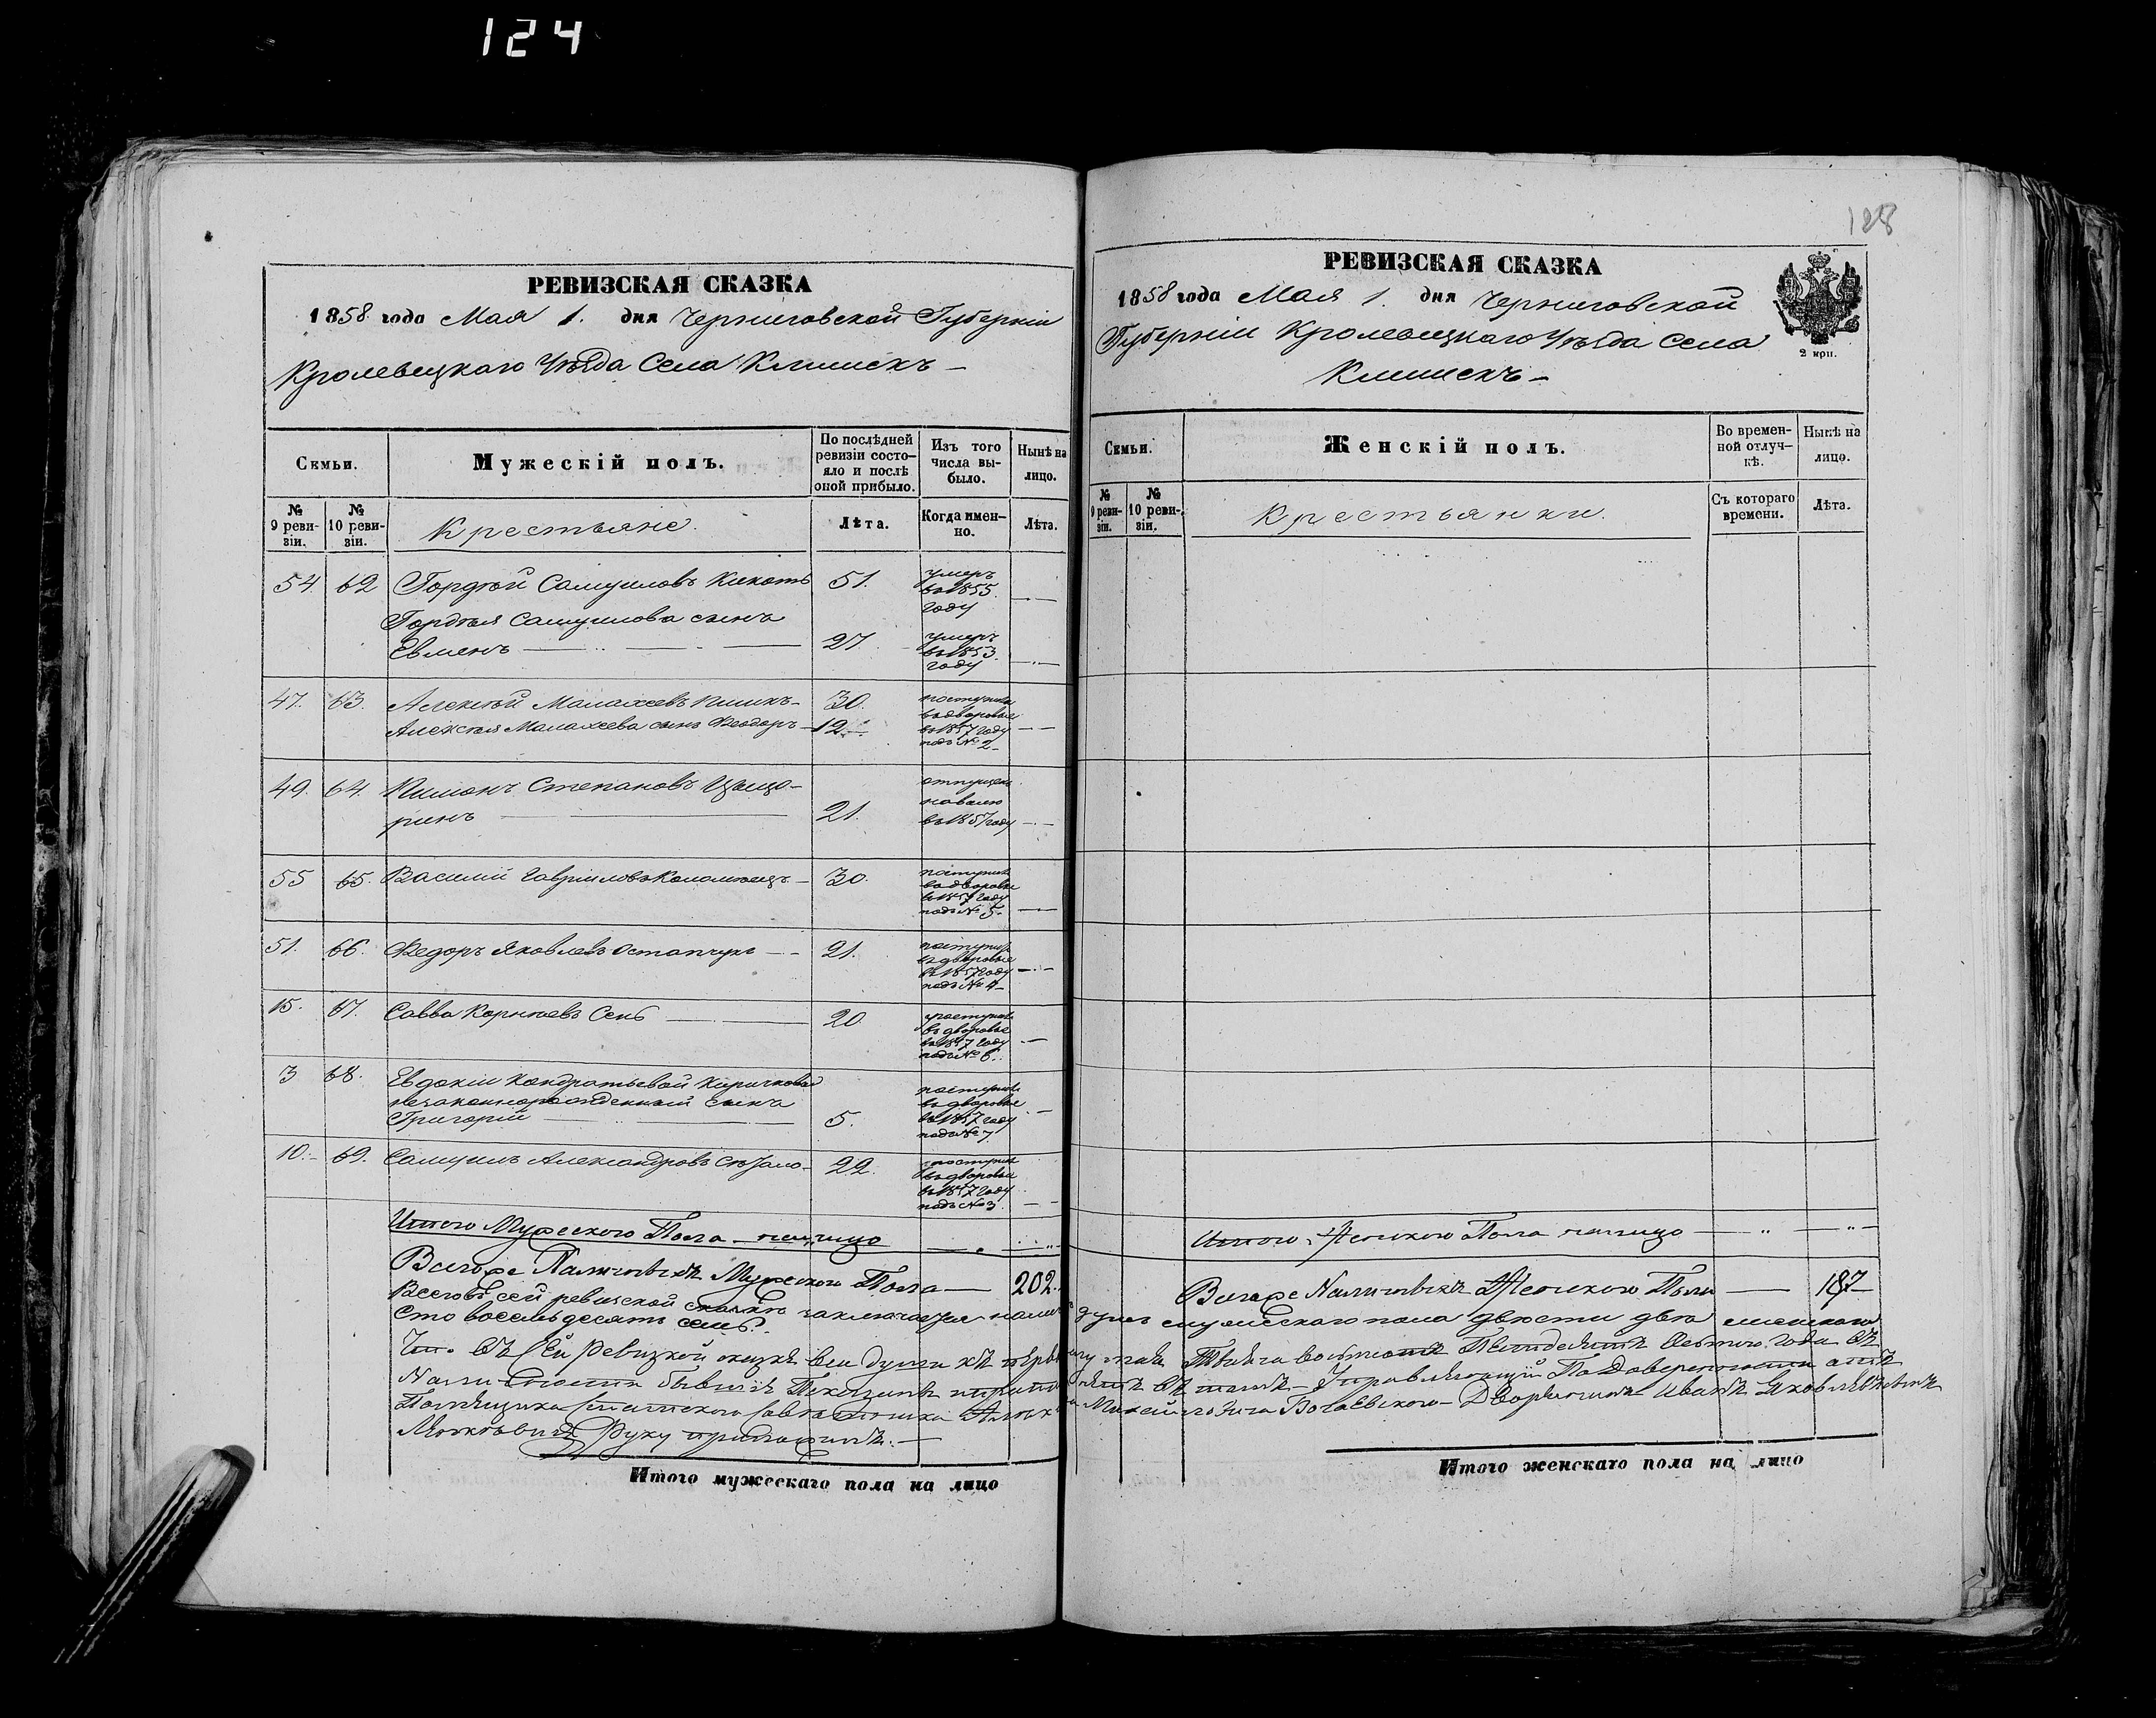 124
128
РЕВИЗСКАЯ СКАЗКА
1858 года Мая 1. дня Черниговской Губерніи
Кролевецкаго Уѣзда Села Клишекъ —
Семьи.
Мужескій полъ.
По послѣдней ревизіи состояло и послѣ оной прибыло.
Изъ того числа выбыло.
Нынѣ на лицо.
№ 9 ревизіи.
№ 10 ревизіи.
Крестьяне.
Лѣта.
Когда именно.
Лѣта.
54 62 Гордѣй Самуиловъ 51. умеръ въ 1855. году
Гордѣя Самуилова сынъ
Евменъ 27. умеръ въ 1853. году
47. 63. Алексѣй Малахеевъ 30. поступилъ въ дворовые
Алексѣя Малахеева сынъ Ѳеодоръ 12. въ 1857 году подъ № 2
49. 64. Пименъ Степановъ отпущенъ на волю
ринъ 21. въ 1857 году
55 65. Василій Гавриловъ Коломіецъ 30. поступилъ въ дворовые въ 1857 году подъ № 5.
51. 66. Ѳедоръ Яковлевъ Остапчукъ 21. поступилъ въ дворовые въ 1857 году подъ № 4
15. 67. Савва Корнеевъ Сень 20. поступилъ въ дворовые въ 1857 году подъ № 6.
3 68. Евдокіи Кондратьевой Киричковой
незаконнорожденный сынъ
Григорій 5. поступилъ въ дворовые въ 1857 году подъ № 7
10. 69. Самуилъ Александровъ 22. поступилъ въ дворовые въ 1857 году подъ № 3.
Итого Мужеского Пола налицо
Всего же Наличныхъ Мужеского Пола — 202.
РЕВИЗСКАЯ СКАЗКА
1858 года Мая 1. дня Черниговской
Губерніи Кролевецкаго Уѣзда Села
Клишекъ —
2 крп.
Семьи.
Женскій полъ.
Во временной отлучкѣ.
Нынѣ на лицо.
№ 9 ревизіи.
№ 10 ревизіи.
Крестьянки.
Съ котораго времени.
Лѣта.
Итого Женского Пола налицо
Всего же Наличныхъ Женского Пола — 187
Всего въ сей ревизской сказкѣ заключается налицо душъ мужескаго пола двѣсти двѣ женскаго
сто восемьдесятъ семь.
Что въ сей Ревизкой сказкѣ все души къ первому мая Тысяча восемсотъ Пятдесятъ осьмого года въ
бывшіе Показаны Управляющій По Довѣренности отъ
Помѣщика Дворянинъ Иванъ Яковлевъ сынъ
Руку приложилъ. —
Итого мужескаго пола на лицо
Итого женскаго пола на лицо